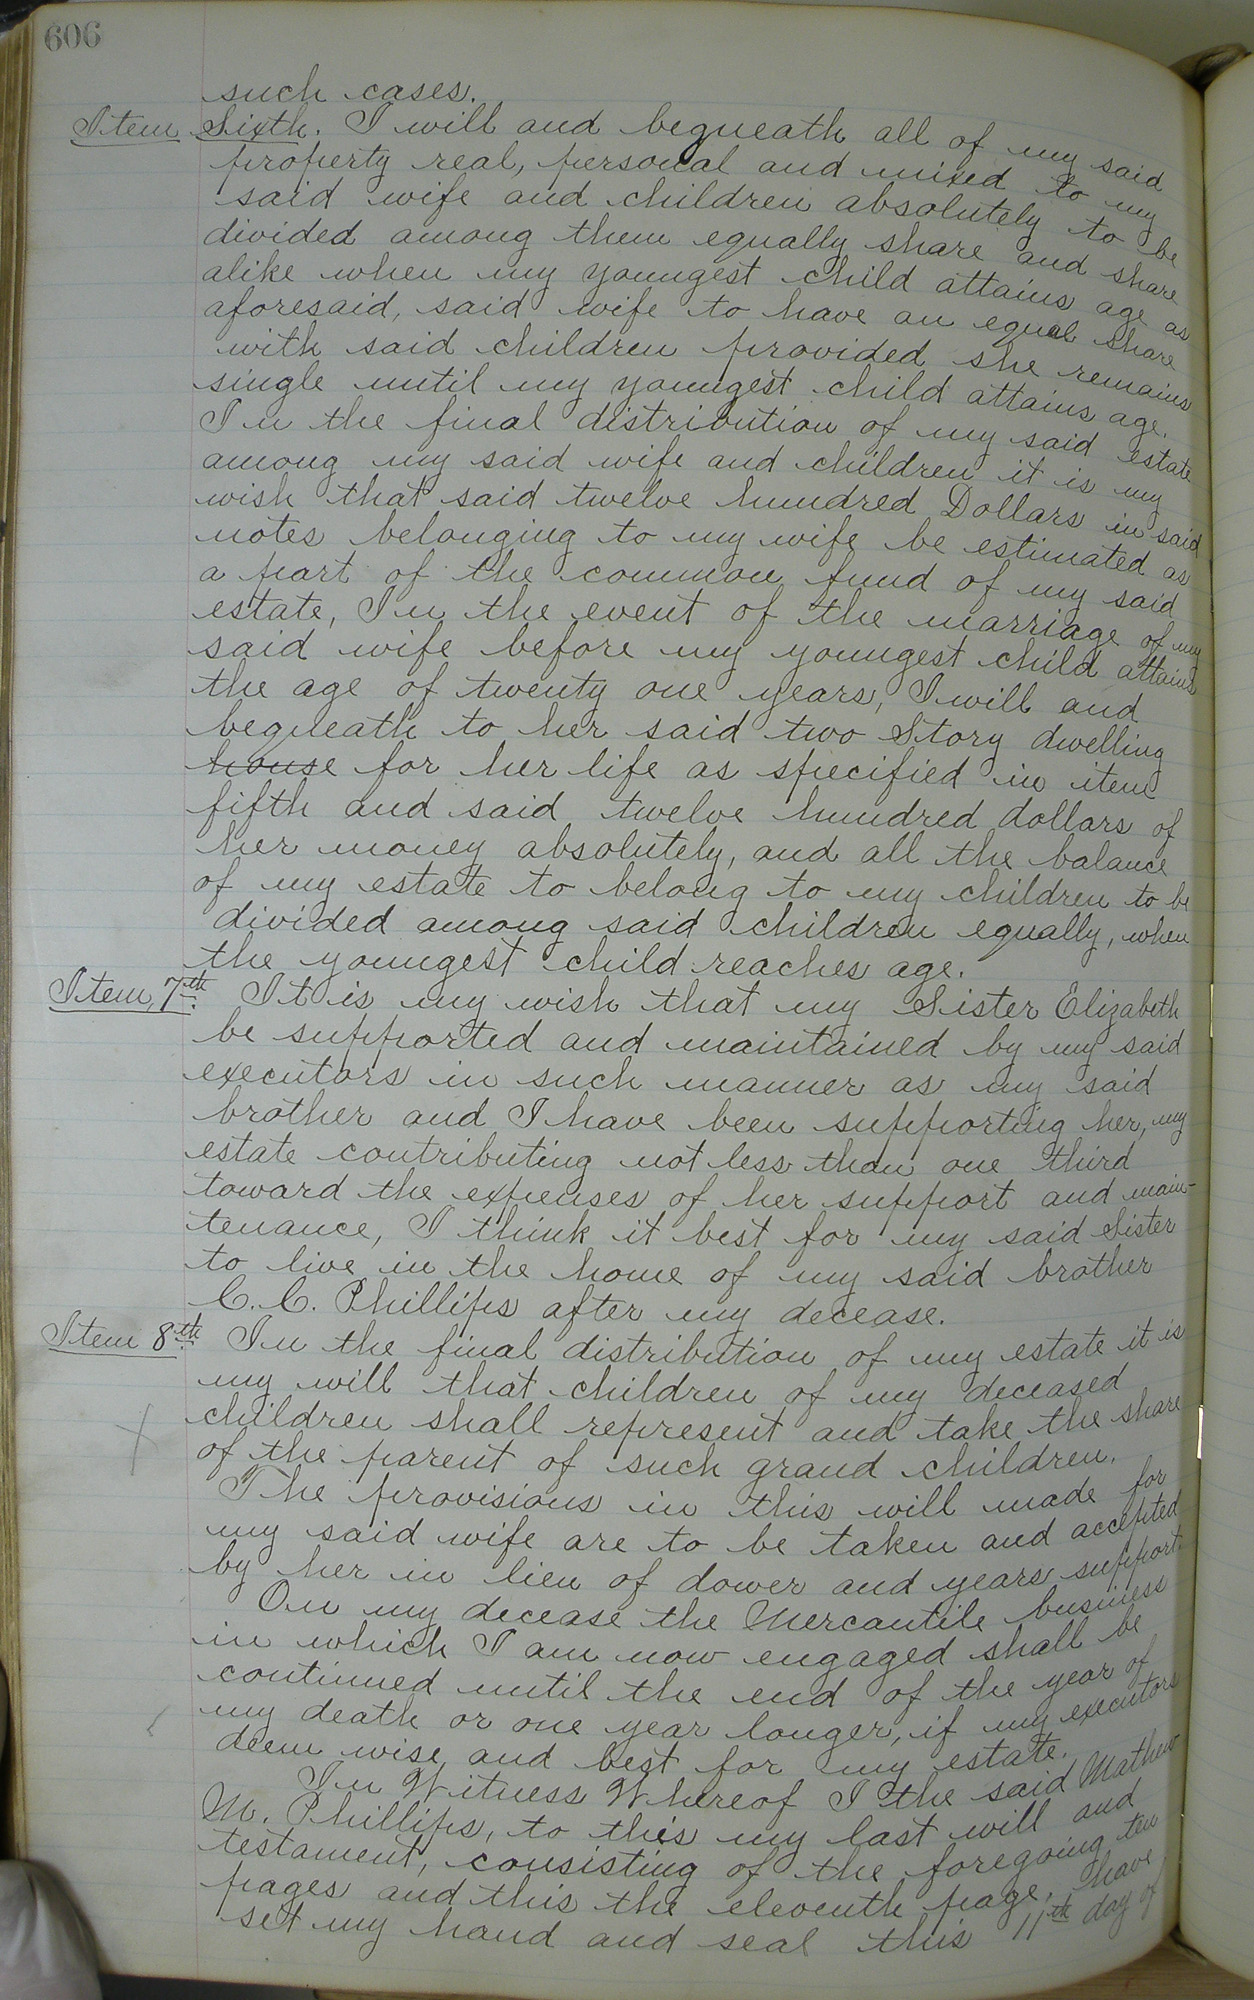 606
such cases.
Item Sixth. I will and bequeath all of my said
property real, personal and mixed to my
said wife and children absolutely to be
divided among them equally share and share
alike when my youngest child attains age as
aforesaid, said wife to have an equal share
with said children provided she remains
single until my youngest child attains age.
In the final distribution of my said estate
among my said wife and children it is my
wish that said twelve hundred Dollars in said
notes belonging to my wife be estimated as
a part of the common fund of my said
estate, In the event of the marriage of my
said wife before my youngest child attains
the age of twenty one years, I will and
bequeath to her said two Story dwelling
house for her life as specified in item
fifth and said twelve hundred dollars of
her money absolutely, and all the balance
of my estate to belong to my children to be
divided among said children equally, when
the youngest child reaches age.
Item, 7th. It is my wish that my Sister Elizabeth
be supported and maintained by my said
executors in such manner as my said
brother and I have been supporting her, my
estate contributing not less than one third
toward the expenses of her support and main-
tenance, I think it best for my said Sister
to live in the home of my said brother
C. C. Phillips after my decease.
Item 8th. In the final distribution of my estate it is
my will that children of my deceased
children shall represent and take the share
of the parent of such grand children.
The provisions in this will made for
my said wife are to be taken and accepted
by her in lieu of dower and years support.
On my decease the Mercantile business
in which I am now engaged shall be
continued until the end of the year of
my death or one year longer, if my executors
deem wise and best for my estate.
In Witness Whereof I the said Mathew
M. Phillips, to this my last will and
testament, consisting of the foregoing ten
pages and this the eleventh page, have
set my hand and seal this 11th day of